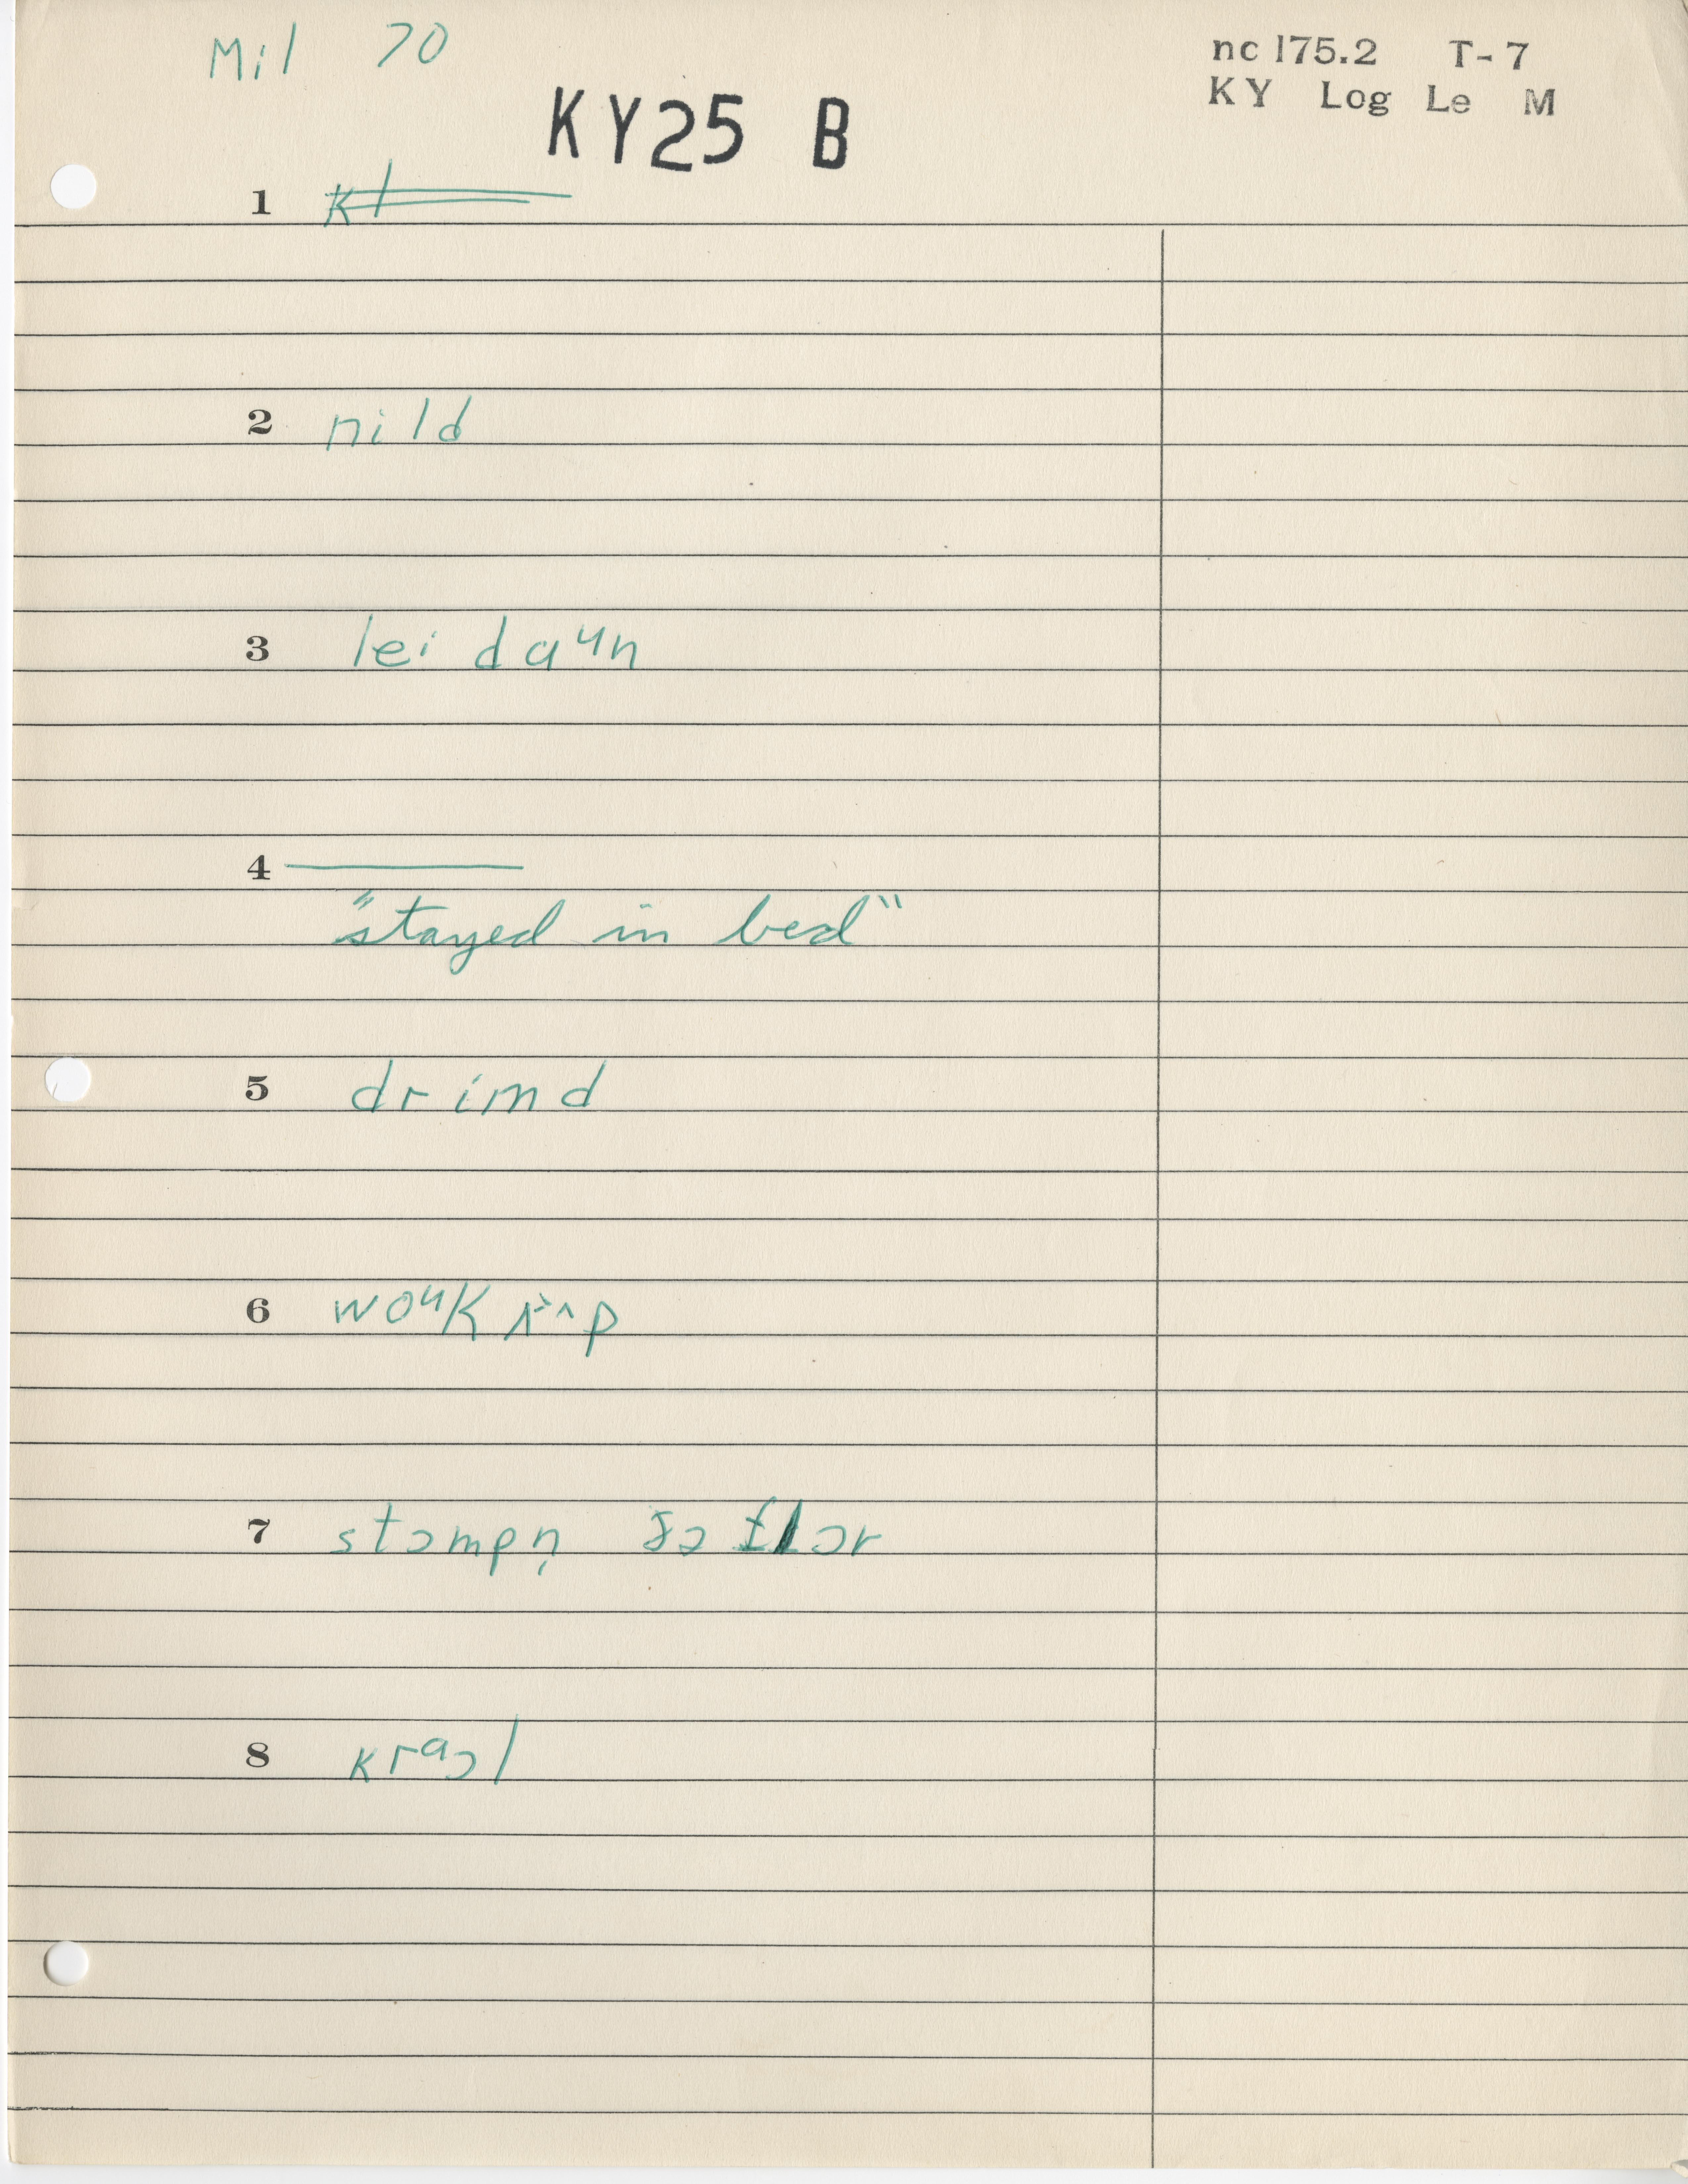 Mil 70
nc 175.2 T-7
KY Log Le M
KY25 B
1 kl
2 nild
3 lei daun
4 ———
"stayed in bed"
5 drimd
6 wouk ʌp
7 stɔmpn̩ ðə flɔr
8 kraɔl